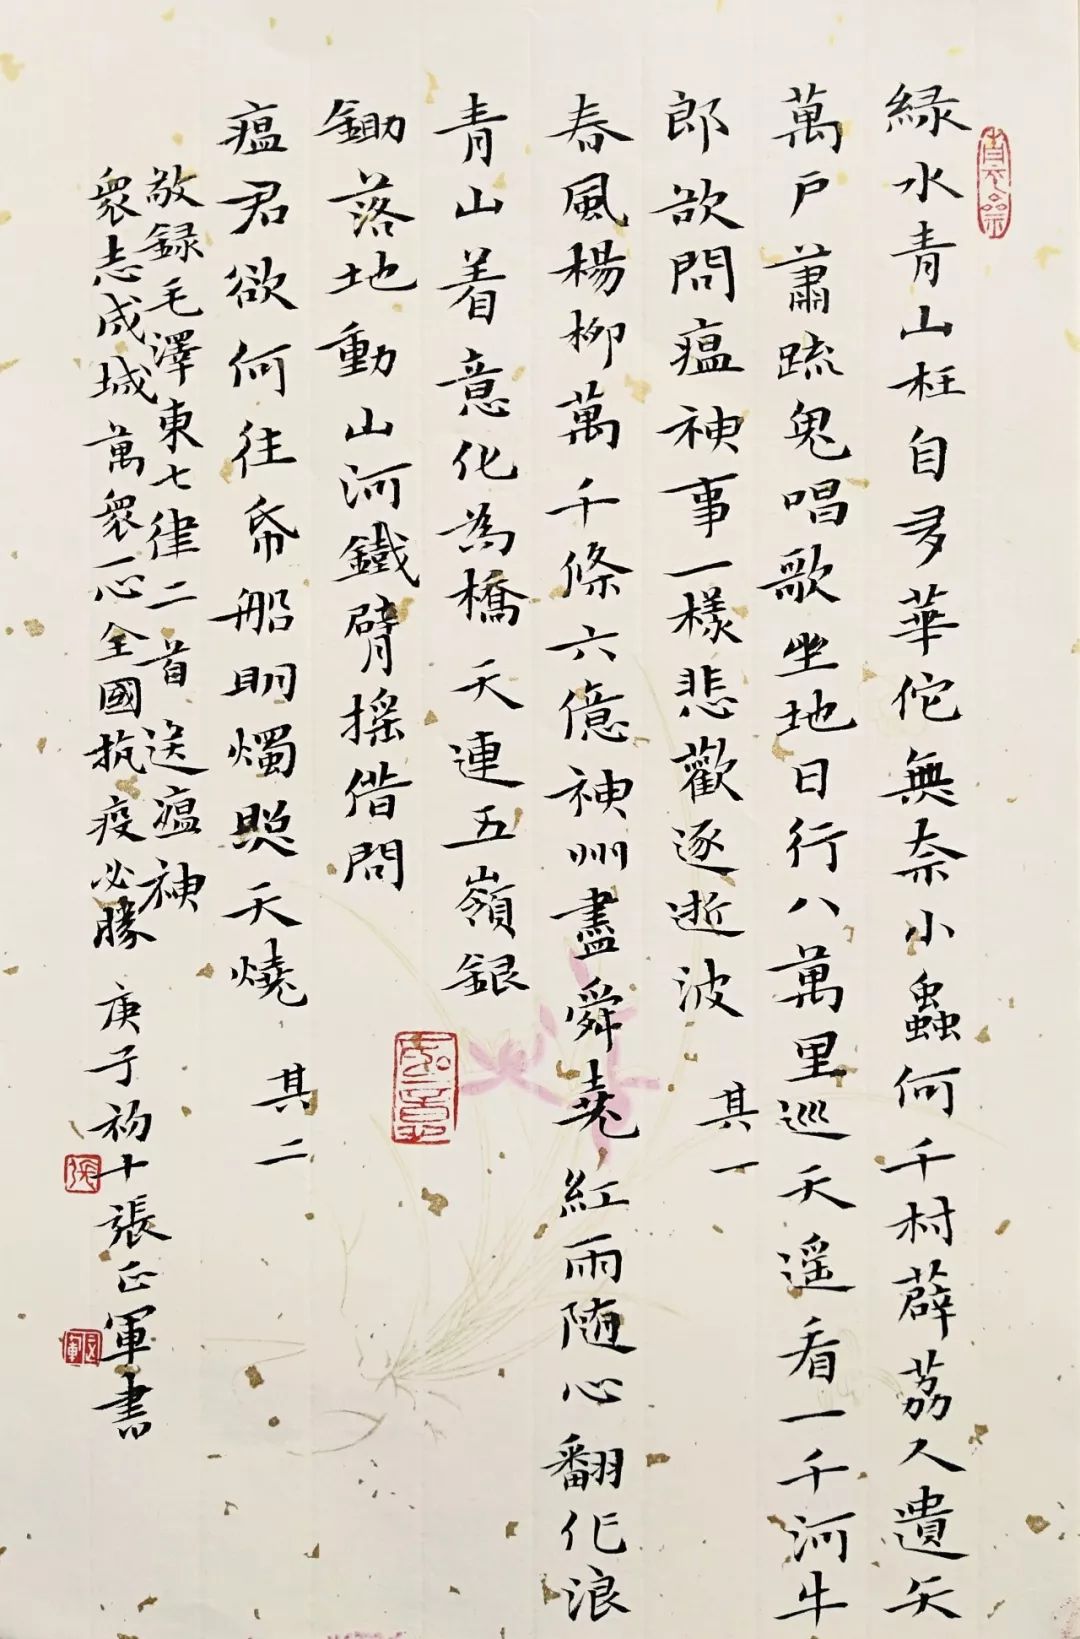 緑水青山枉自多華佗無奈小蟲何千村薜荔人遺矢
萬戶蕭疏鬼唱歌坐地日行八萬里巡天遥看一千河牛
郎欲問瘟神事一樣悲歡逐逝波 其一
春風楊柳萬千條六億神州盡舜堯紅雨随心翻作浪
青山着意化為橋天連五嶺銀
鋤落地動山河鐵臂摇借問
瘟君欲何往帋船明燭照天燒 其二
敬録毛澤東七律二首送瘟神
衆志成城萬衆一心全國抗疫必勝 庚子初十張正軍書